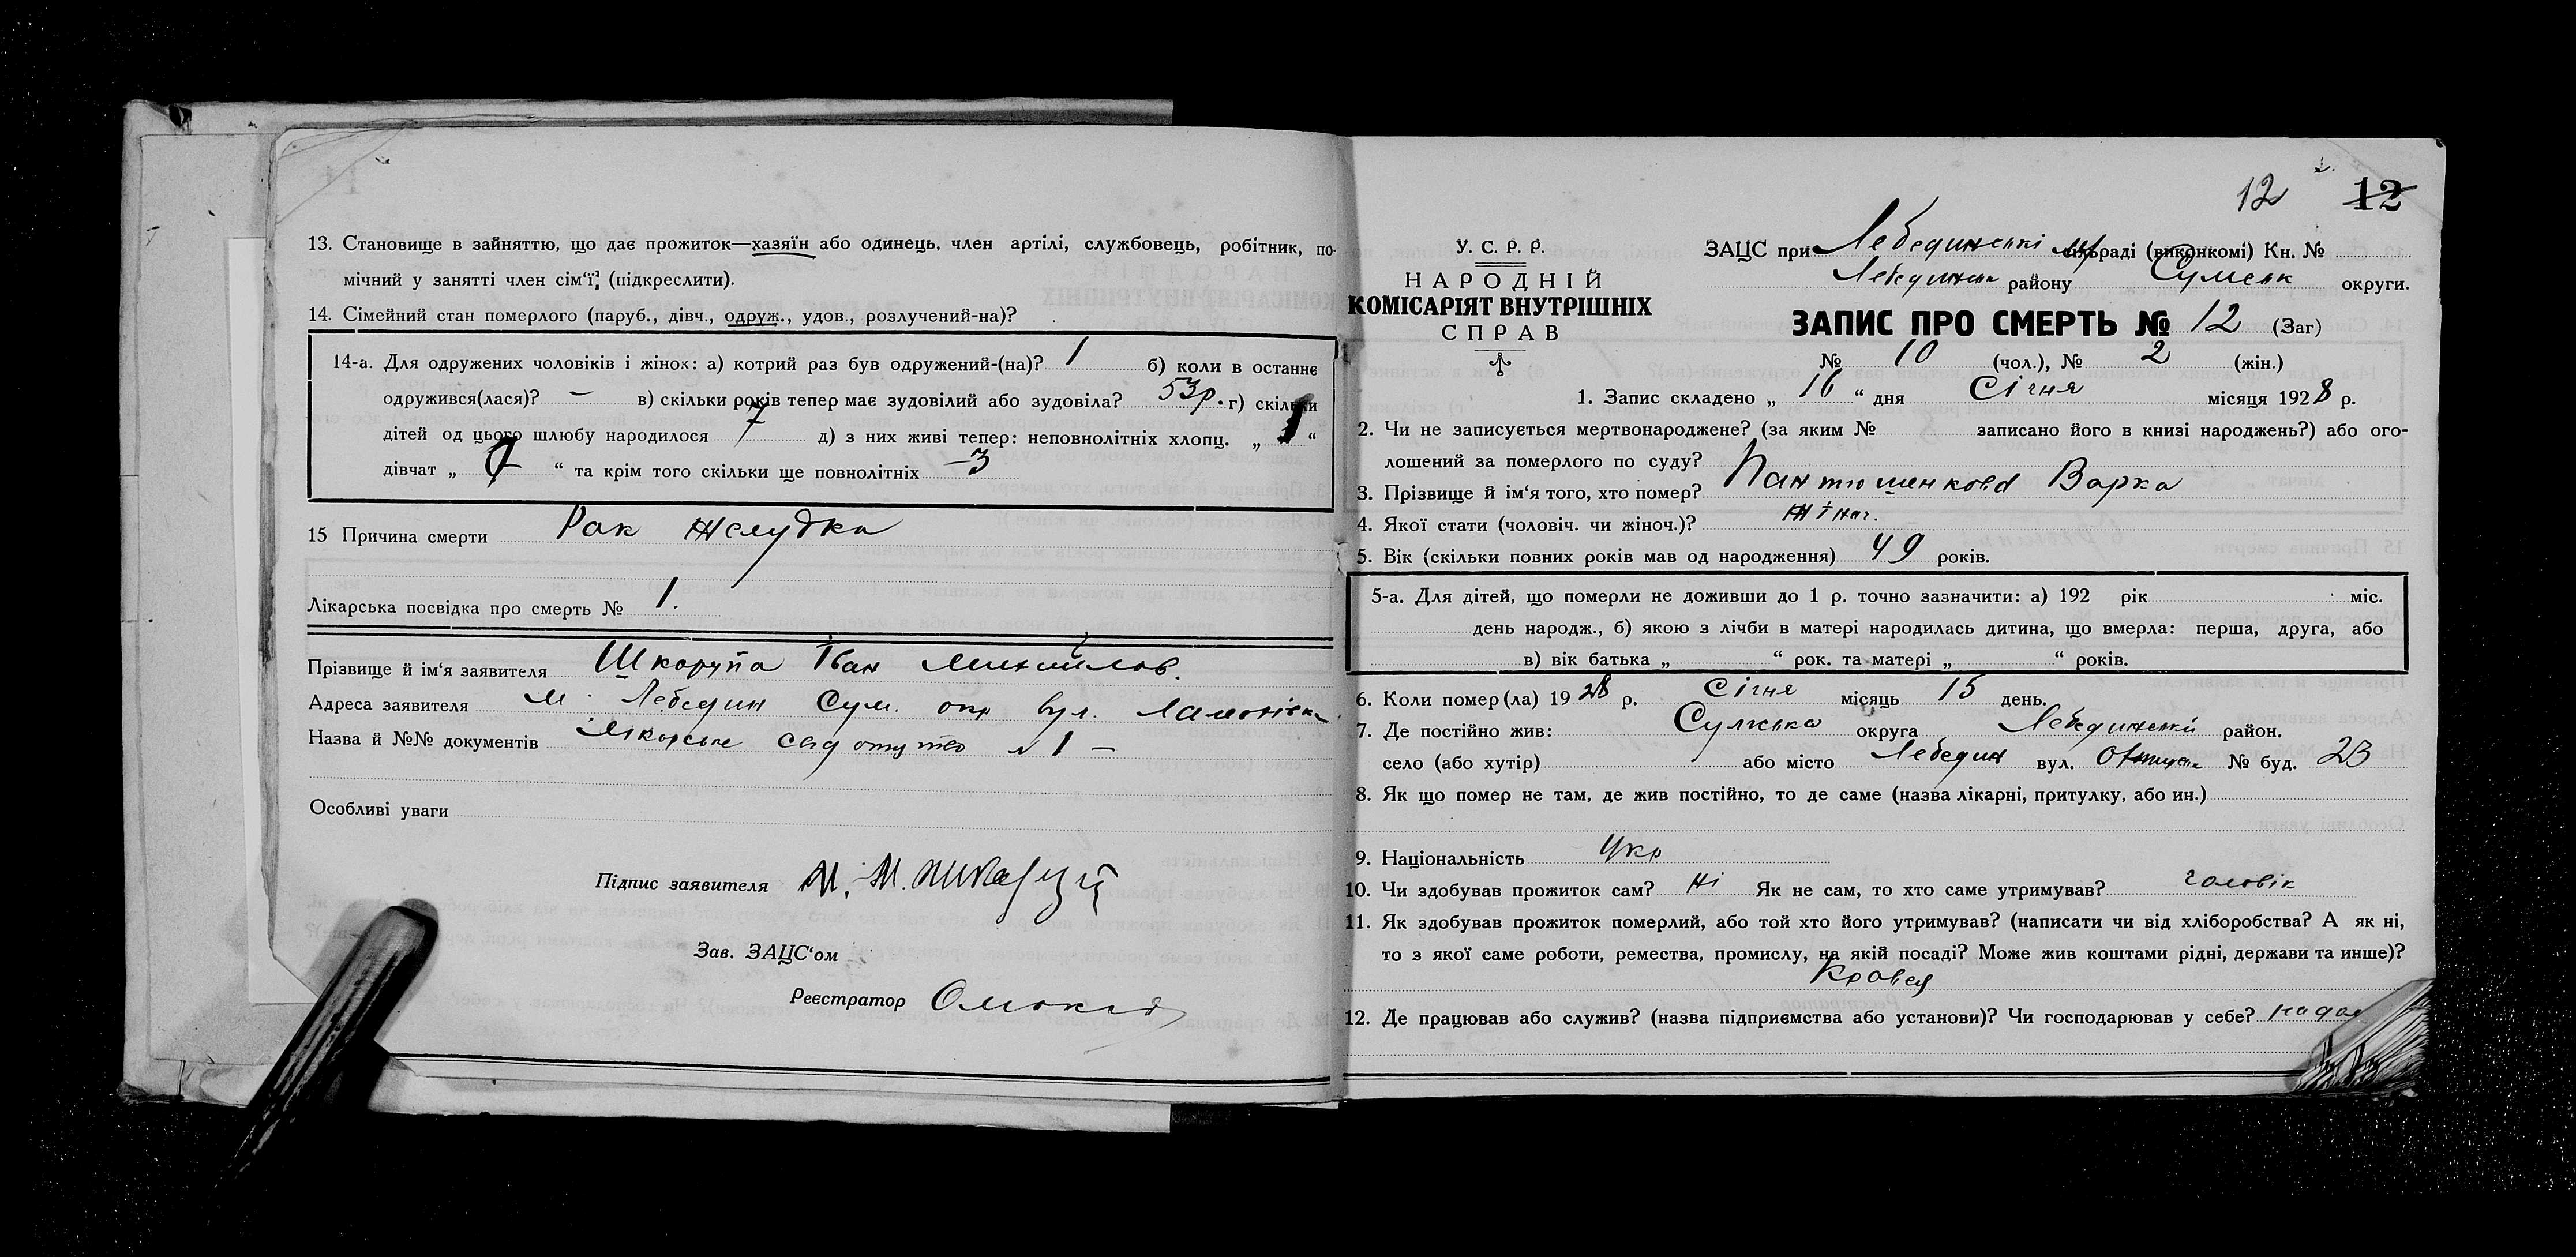 13. Становище в зайняттю, що дає прожиток—хазяїн або одинець, член артілі, службовець, робітник, по-
мічний у занятті член сім'ї, (підкреслити).
14. Сімейний стан померлого (паруб., дівч., одруж., удов., розлучений-на)?
14-а. Для одружених чоловіків і жінок: а) котрий раз був одружений-(на)? 1 б) коли в останнє
одружився(лася)? – в) скільки років тепер має зудовілий або зудовіла? 53р. г) скільки
дітей од цього шлюбу народилося 7 д) з них живі тепер: неповнолітніх хлопц. „ 1 “
дівчат „ “ та крім того скільки ще повнолітніх –3
15 Причина смерти Рак желудка
Лікарська посвідка про смерть № 1.
Прізвище й ім'я заявителя Шкорупа Іван Михайлов.
Адреса заявителя м. Лебедин Сум. окр вул.
Назва й №№ документів Лікарське № 1 –
Особливі уваги
Підпис заявителя
Зав. ЗАЦС'ом
Реєстратор
12 12
У. С. Р. Р.
НАРОДНІЙ
КОМІСАРІЯТ ВНУТРІШНІХ
СПРАВ
ЗАЦС при Лебединські сільраді (виконкомі) Кн. №
Лебединськ району Сумськ округи.
ЗАПИС ПРО СМЕРТЬ № 12 (Заг)
№ 10 (чол.), № 2 (жін.)
1. Запис складено „ 16 “ дня Січня місяця 1928 р.
2. Чи не записується мертвонароджене? (за яким № записано його в книзі народжень?) або ого-
лошений за померлого по суду?
3. Прізвище й ім'я того, хто помер? Пантюшенкова Варка
4. Якої стати (чоловіч. чи жіноч.)? жіноч.
5. Вік (скільки повних років мав од народження) 49 років.
5-а. Для дітей, що померли не доживши до 1 р. точно зазначити: а) 192 рік міс.
день народж., б) якою з лічби в матері народилась дитина, що вмерла: перша, друга, або
в) вік батька „ “ рок. та матері „ “ років.
6. Коли помер(ла) 1928 р. Січня місяць 15 день.
7. Де постійно жив: Сумська округа Лебединській район.
село (або хутір) або місто Лебедин вул. № буд. 23
8. Як що помер не там, де жив постійно, то де саме (назва лікарні, притулку, або ин.)
9. Національність Укр
10. Чи здобував прожиток сам? Ні Як не сам, то хто саме утримував? чоловік
11. Як здобував прожиток померлий, або той хто його утримував? (написати чи від хліборобства? А як ні,
то з якої саме роботи, ремества, промислу, на якій посаді? Може жив коштами рідні, держави та инше)?
Кравец
12. Де працював або служив? (назва підприємства або установи)? Чи господарював у себе?